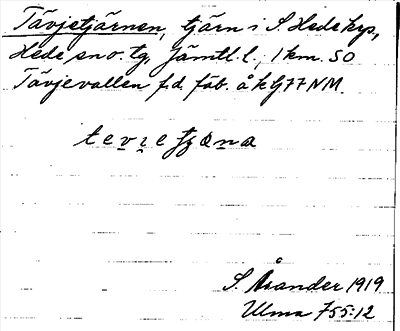 Tävjetjärnen, tjärn i S. Hede krp,
Hede sn o. tg. Jämtl. l., 1 km. SO
Tävjevallen f.d. fäb. å kG77NM.
S. Åsander 1919
Ulma 755:12